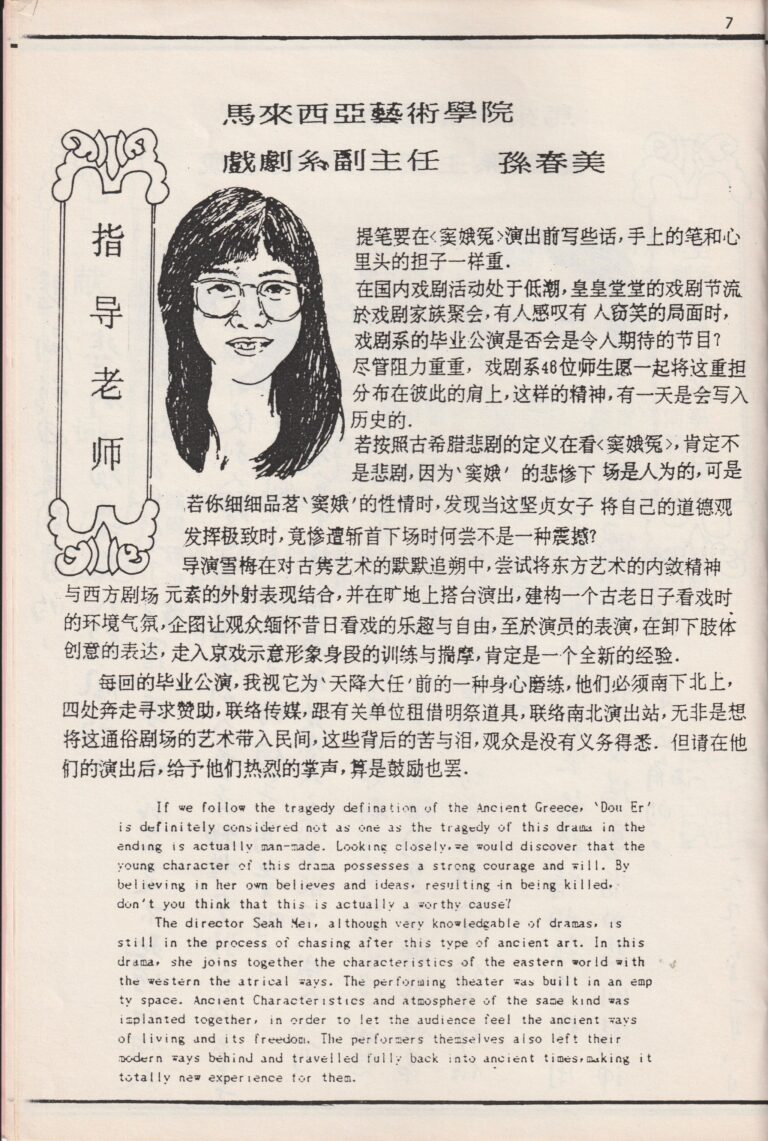 7
馬來西亞藝術學院
戲劇系副主任 孫春美
指导老师
提笔要在<窦娥冤>演出前写些话,手上的笔和心
里头的担子一样重.
在国内戏剧活动处于低潮,皇皇堂堂的戏剧节流
於戏剧家族聚会,有人感叹有人窃笑的局面时,
戏剧系的毕业公演是否会是令人期待的节目?
尽管阻力重重,戏剧系46位师生愿一起将这重担
分布在彼此的肩上,这样的精神,有一天是会写入
历史的.
若按照古希腊悲剧的定义在看<窦娥冤>,肯定不
是悲剧,因为‘窦娥’的悲惨下 场是人为的,可是
若你细细品茗‘窦娥’的性情时,发现当这坚贞女子 将自己的道德观
发挥极致时,竟惨遭斩首下场时何尝不是一种震撼?
导演雪梅在对古隽艺术的默默追朔中,尝试将东方艺术的内敛精神
与西方剧场 元素的外射表现结合,并在旷地上搭台演出,建构一个古老日子看戏时
的环境气氛,企图让观众缅怀昔日看戏的乐趣与自由,至於演员的表演,在卸下肢体
创意的表达,走入京戏示意形象身段的训练与揣摩,肯定是一个全新的经验.
每回的毕业公演,我视它为‘天降大任’前的一种身心磨练,他们必须南下北上,
四处奔走寻求赞助,联络传媒,跟有关单位租借明祭道具,联络南北演出站,无非是想
将这通俗剧场的艺术带入民间,这些背后的苦与泪,观众是没有义务得悉. 但请在他
们的演出后,给予他们热烈的掌声,算是鼓励也罢.
If we follow the tragedy defination of the Ancient Greece, 'Dou Er'
is definitely considered not as one as the tragedy of this drama in the
ending is actually man-made. Looking closely,we would discover that the
young character of this drama possesses a strong courage and will. By
believing in her own believes and ideas, resulting in being killed,
don't you think that this is actually a worthy cause?
The director Seah Mei, although very knowledgable of dramas, is
still in the process of chasing after this type of ancient art. In this
drama, she joins together the characteristics of the eastern world with
the western the atrical ways. The performing theater was built in an emp
ty space. Ancient Characteristics and atmosphere of the same kind was
implanted together, in order to let the audience feel the ancient ways
of living and its freedom. The performers themselves also left their
modern ways behind and travelled fully back into ancient times,making it
totally new experience for them.